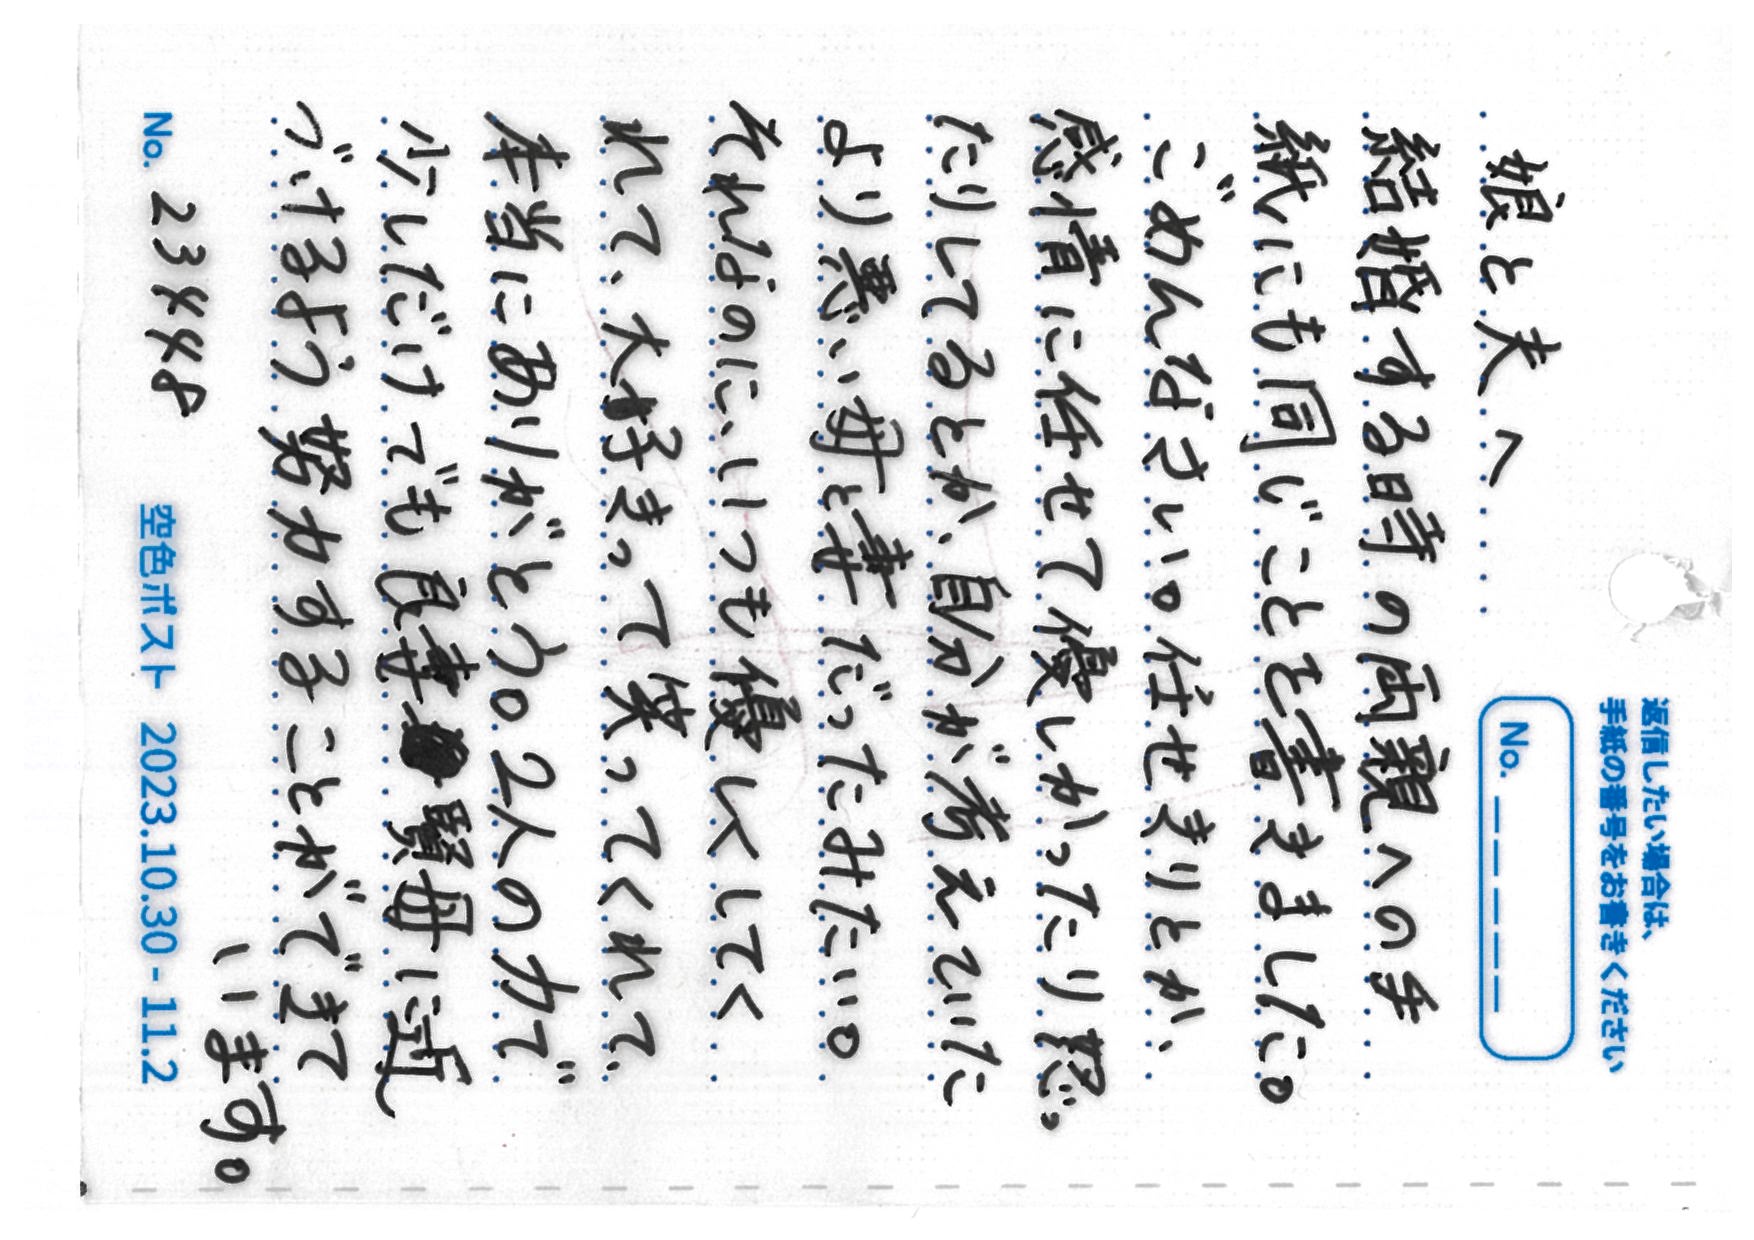 返信したい場合は、
手紙の番号をお書きください
No. _ _ _ _ _
娘と夫へ
結婚する時の両親への手
紙にも同じことを書きました。
ごめんなさい。任せきりとか、
感情に任せて優しかったり怒っ
たりしてるとか、自分が考えていた
より悪い母と妻だったみたい。
それなのに、いつも優しくしてく
れて、大好きって笑ってくれて、
本当にありがとう。2人の力で
少しだけでも良妻賢母に近
づけるよう努力することができて
います。
No. 23448
空色ポスト 2023.10.30 - 11.2